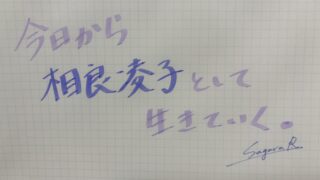 今日から
相良凌子として
生きていく。
Sagara R.